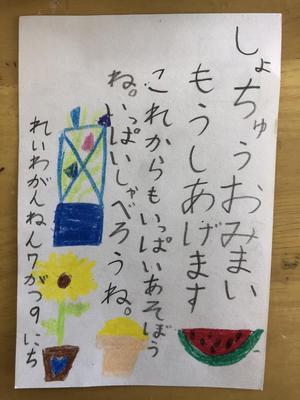 しょちゅうおみまい
もうしあげます
これからもいっぱいあそぼう
ね。いっぱいしゃべろうね。
れいわがんねん7がつ9にち